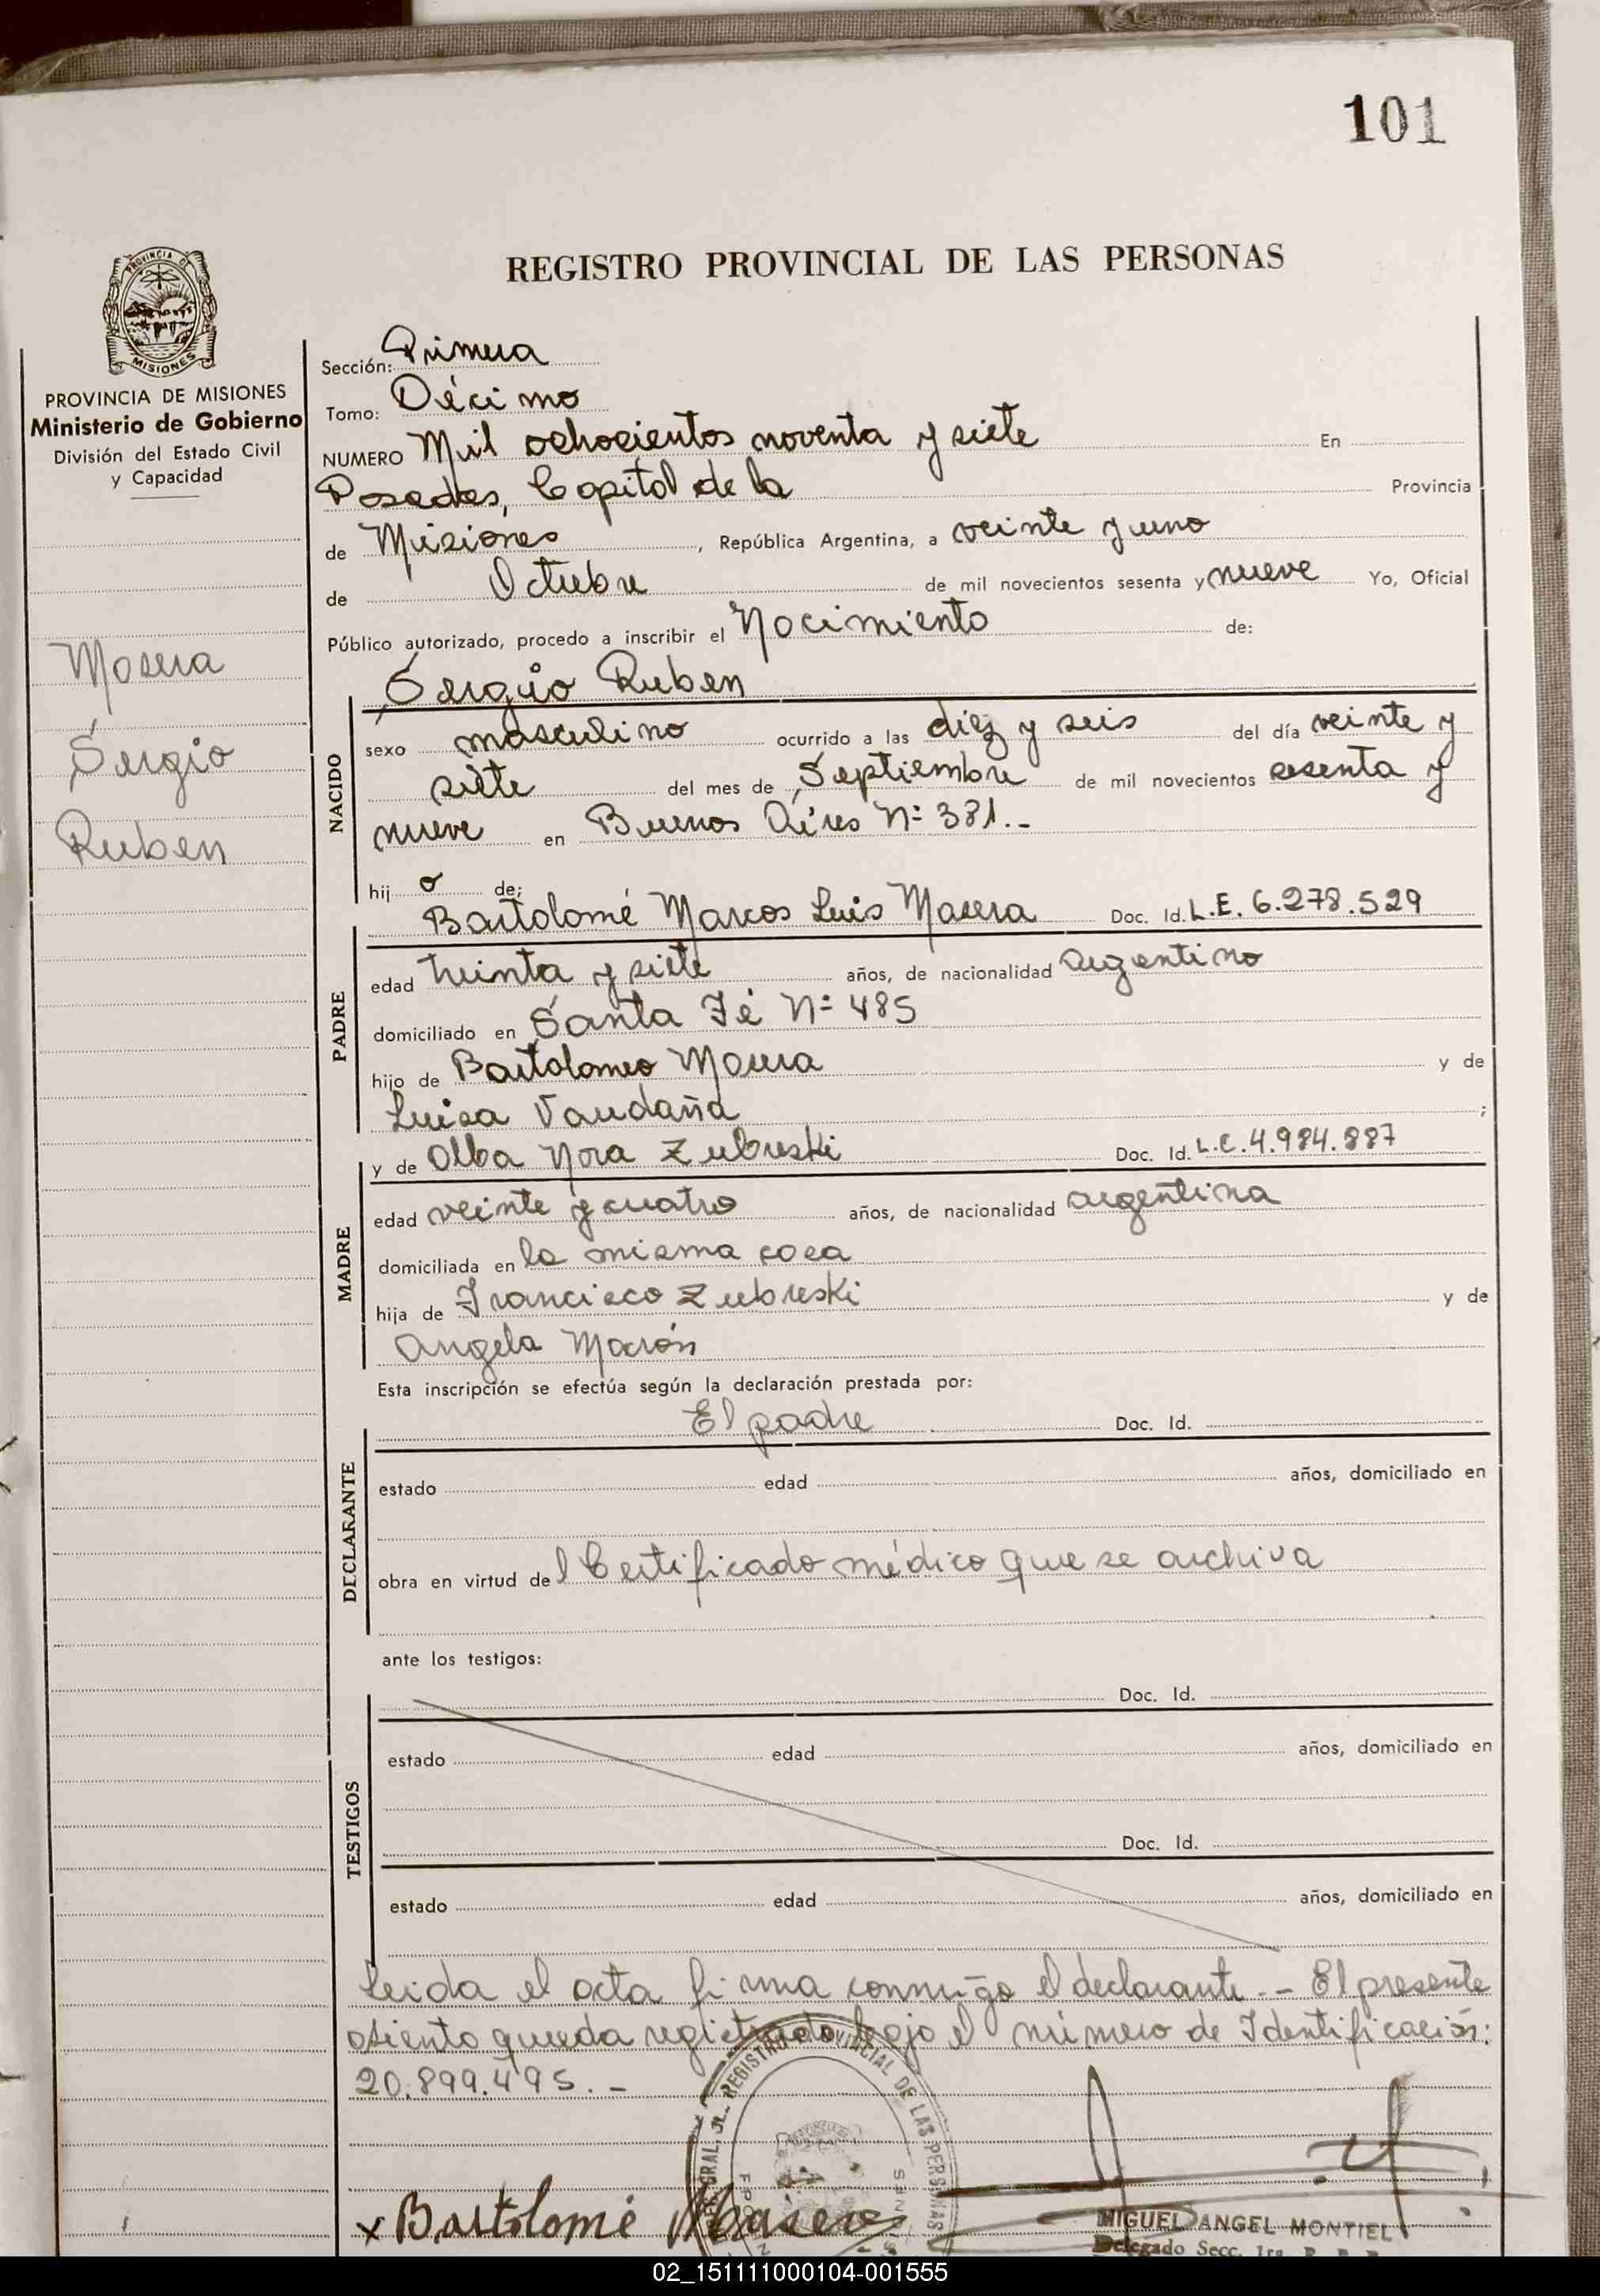 101
REGISTRO PROVINCIAL DE LAS PERSONAS
PROVINCIA DE
MISIONES
PROVINCIA DE MISIONES
Ministerio de Gobierno
División del Estado Civil
y Capacidad
Masera
Sergio
Ruben
Sección: Primera
Tomo: Décimo
NUMERO Mil ochocientos noventa y siete En
Posadas, Capital de la Provincia
de Misiones, República Argentina, a veinte y uno
de Octubre de mil novecientos sesenta y nueve Yo, Oficial
Público autorizado, procedo a inscribir el Nacimiento de:
Sergio Ruben
NACIDO
sexo masculino ocurrido a las diez y seis del día veinte y
siete del mes de Septiembre de mil novecientos sesenta y
nueve en Buenos Aires Nº 381.-
hijo de:
Bartolomé Marcos Luis Masera Doc. Id. L.E. 6.278.529
PADRE
edad treinta y siete años, de nacionalidad argentino
domiciliado en Santa Fé Nº 485
hijo de Bartolomeo Masera y de
Luisa Vaudaña;
y de Alba Nora Zubreski Doc. Id. L.C. 4.984.887
MADRE
edad veinte y cuatro años, de nacionalidad argentina
domiciliada en la misma casa
hija de Francisco Zubreski y de
Angela Marón
Esta inscripción se efectúa según la declaración prestada por:
El padre Doc. Id.
DECLARANTE
estado edad años, domiciliado en
obra en virtud del Certificado médico que se archiva
ante los testigos:
Doc. Id.
TESTIGOS
estado edad años, domiciliado en
Doc. Id.
estado edad años, domiciliado en
Leida el acta firma conmigo el declarante.-- El presente
asiento queda registrado bajo el número de Identificación:
20.899.495.-
REGISTRO PROVINCIAL DE LAS PERSONAS
x Bartolomé Masera
MIGUEL ANGEL MONTIEL
Delegado Secc. 1ra.
02_151111000104-001555